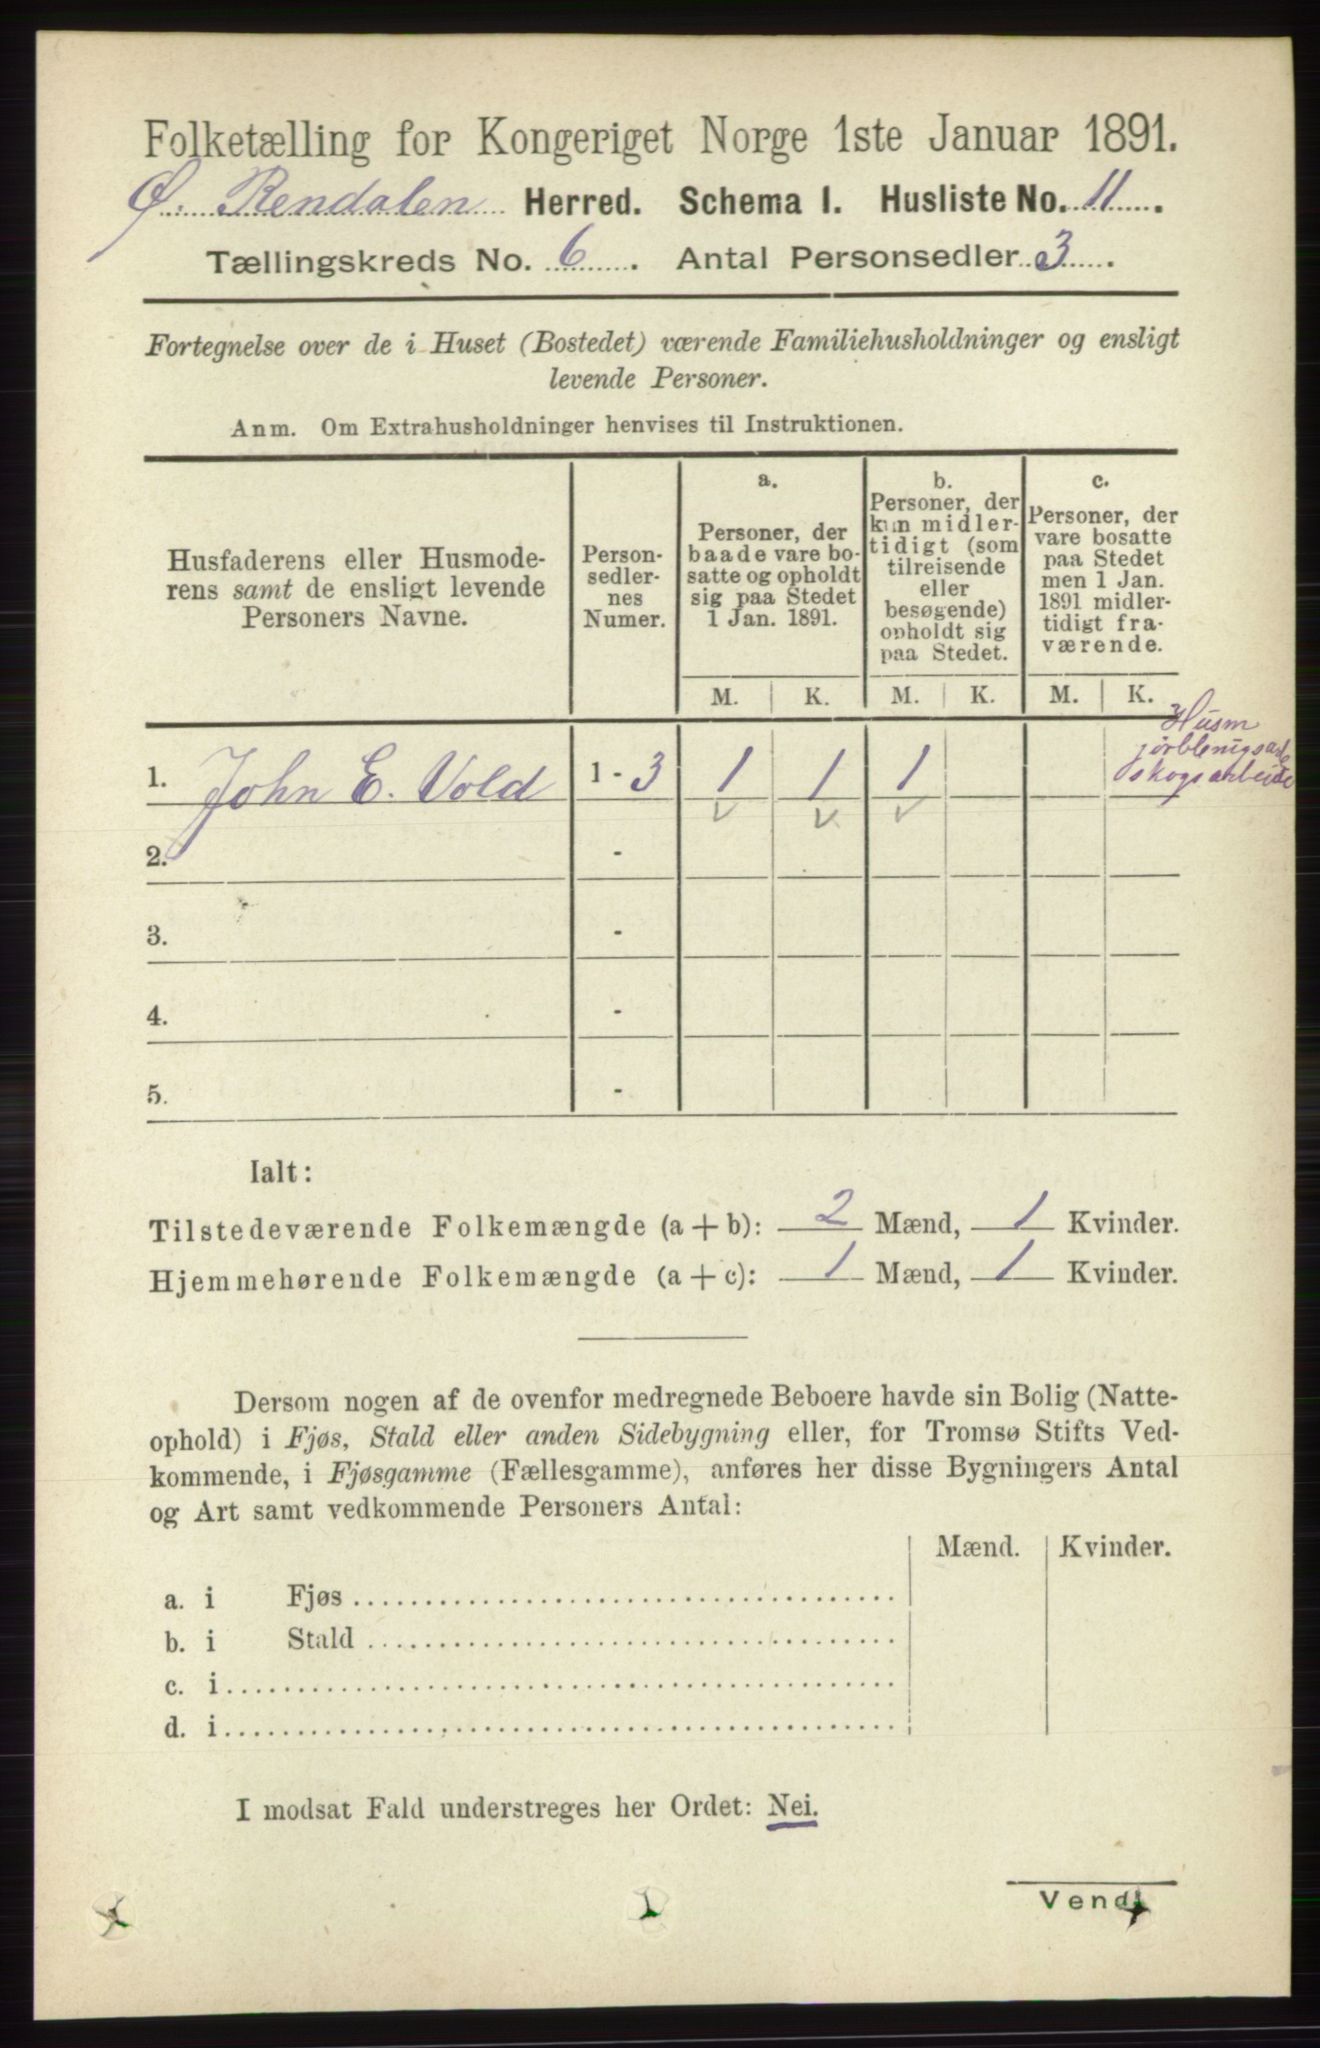 Folketælling for Kongeriget Norge 1ste Januar 1891.
Ø. Rendalen Herred. Schema I. Husliste No. 11.
Tællingskreds No. 6. Antal Personsedler 3.
Fortegnelse over de i Huset (Bostedet) værende Familiehusholdninger og ensligt
levende Personer.
Anm. Om Extrahusholdninger henvises til Instruktionen.
Husfaderens eller Husmode-
rens samt de ensligt levende
Personers Navne.
Person-
sedler-
nes
Numer.
a.
Personer, der
baade vare bo-
satte og opholdt
sig paa Stedet
1 Jan. 1891.
b.
Personer, der
kun midler-
tidigt (som
tilreisende
eller
besøgende)
opholdt sig
paa Stedet.
c.
Personer, der
vare bosatte
paa Stedet
men 1 Jan.
1891 midler-
tidigt fra-
værende.
M. K. M. K. M. K.
Husm
skogsarbeide
1. John E. Vold 1 - 3 1 1 1
2. -
3. -
4. -
5. -
Ialt:
Tilstedeværende Folkemængde (a + b): 2 Mænd, 1 Kvinder.
Hjemmehørende Folkemængde (a + c): 1 Mænd, 1 Kvinder.
Dersom nogen af de ovenfor medregnede Beboere havde sin Bolig (Natte-
ophold) i Fjøs, Stald eller anden Sidebygning eller, for Tromsø Stifts Ved-
kommende, i Fjøsgamme (Fællesgamme), anføres her disse Bygningers Antal
og Art samt vedkommende Personers Antal:
Mænd. Kvinder.
a. i Fjøs
b. i Stald
c. i
d. i
I modsat Fald understreges her Ordet: Nei.
Vend!